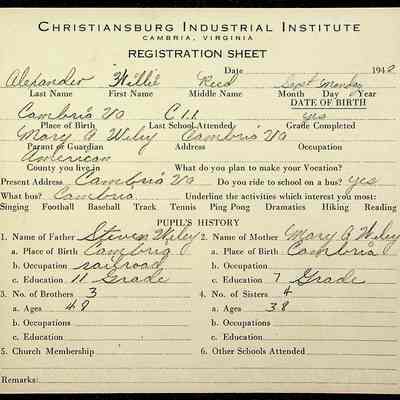 CHRISTIANSBURG INDUSTRIAL INSTITUTE
CAMBRIA, VIRGINIA
REGISTRATION SHEET
Date 1942
Alexander Willie Reed Sept Monday
Last Name First Name Middle Name Month Day Year
DATE OF BIRTH
Cambria Va C I I yes
Place of Birth Last School Attended Grade Completed
Mary A Wiley Cambria Va
Parent or Guardian Address Occupation
American
County you live in What do you plan to make your Vocation?
Present Address Cambria Va Do you ride to school on a bus? yes
What bus? Cambria Underline the activities which interest you most:
Singing Football Baseball Track Tennis Ping Pong Dramatics Hiking Reading
PUPIL'S HISTORY
1. Name of Father Steven Wiley 2. Name of Mother Mary A Wiley
a. Place of Birth Cambria a. Place of Birth Cambria
b. Occupation railroad b. Occupation
c. Education 11 Grade c. Education 7 Grade
3. No. of Brothers 3 4. No. of Sisters 4
a. Ages 48 a. Ages 38
b. Occupations b. Occupations
c. Education c. Education
5. Church Membership 6. Other Schools Attended
Remarks: